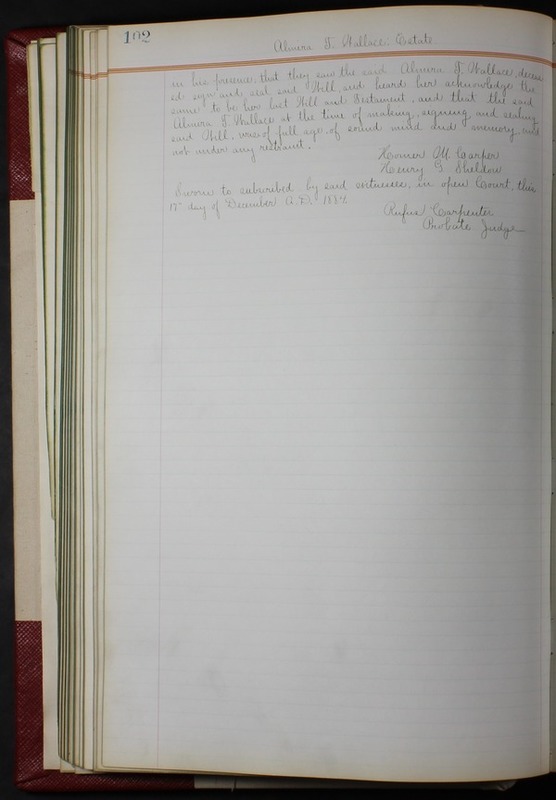 102
Almira T. Wallace; Estate
in his presence, that they saw the said Almira T. Wallace, deceas
ed sign and seal said Will, and heard her acknowledge the
same to be her last Will and Testament, and that the said
Almira T. Wallace at the time of making, signing and sealing
said Will, was of full age of sound mind and memory, and
not under any restraint.
Homer M Carper
Henry G. Sheldon
Sworn to subscribed by said witnesses, in open Court, this
17" day of December A.D. 1887.
Rufus Carpenter
Probate Judge